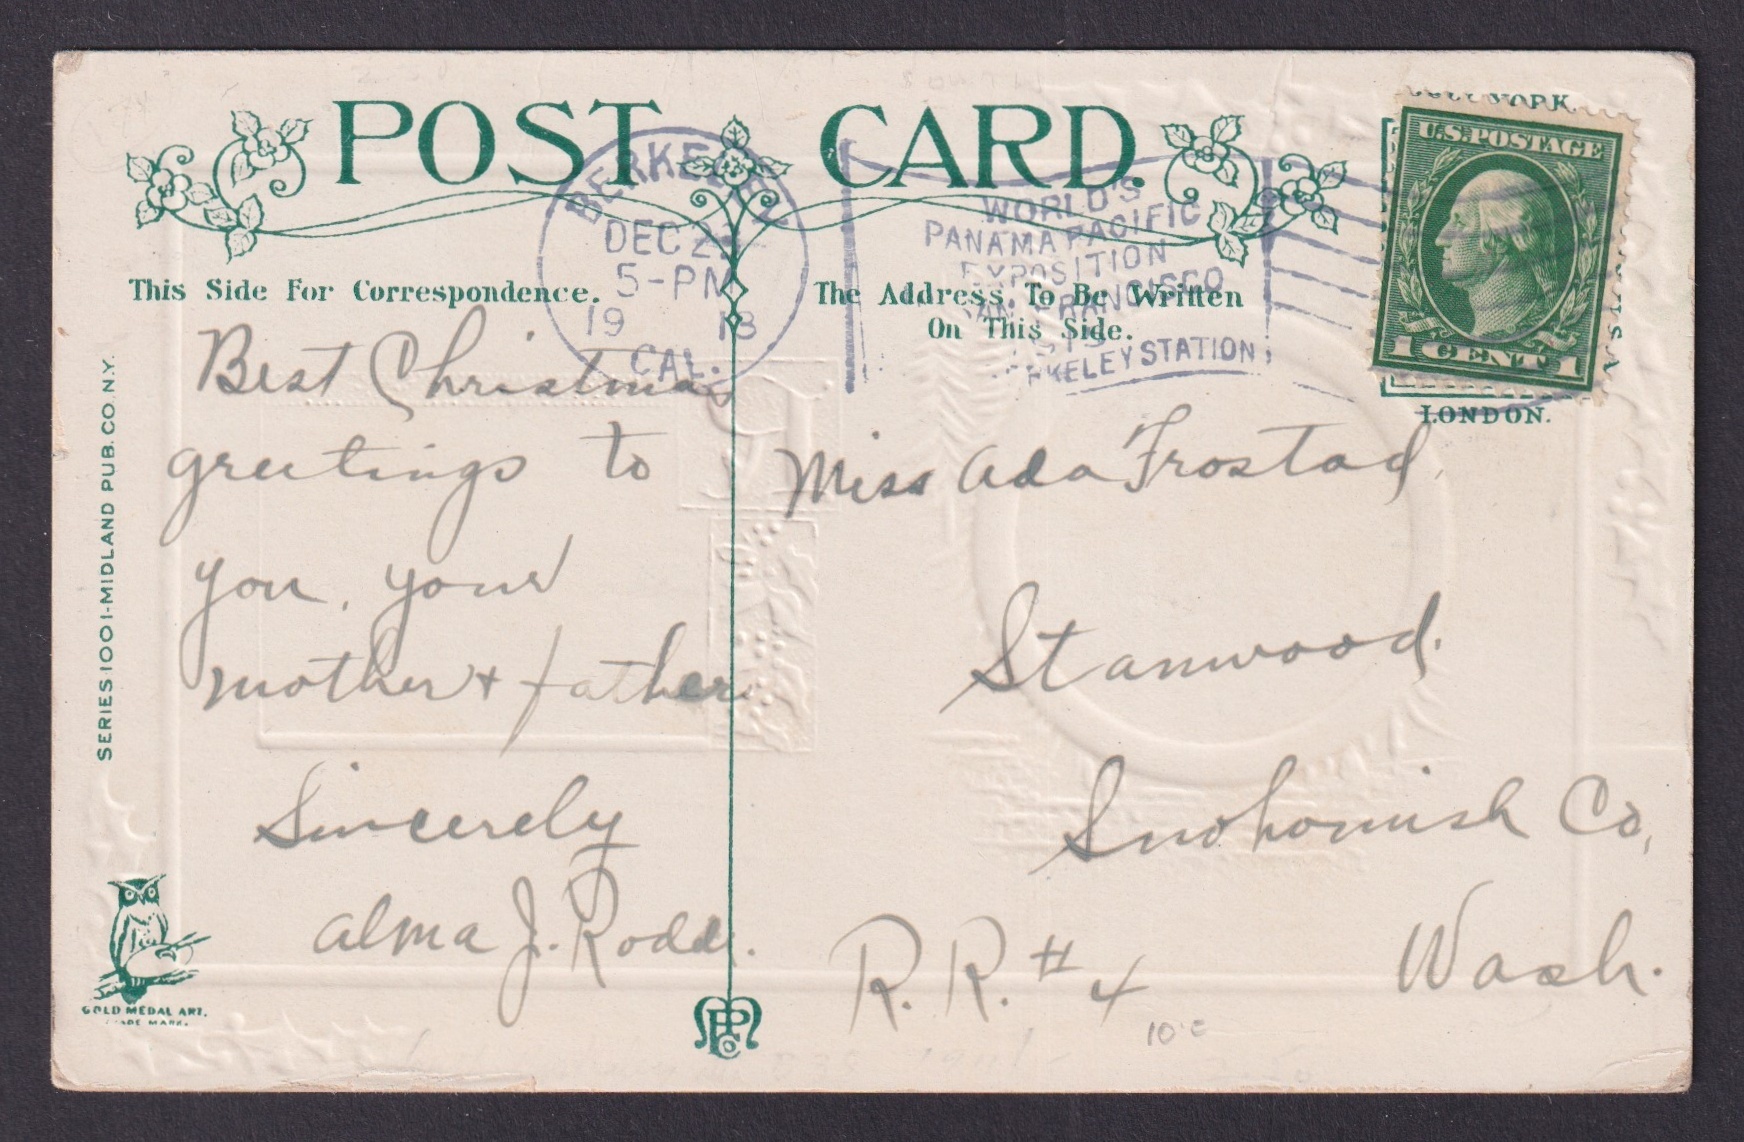 POST CARD.
BERKELEY
DEC 2
5-PM
19 13
CAL.
WORLD'S
PANAMA PACIFIC
EXPOSITION
SAN FRANCISCO
BERKELEY STATION
U.S. POSTAGE
1 CENT 1
LONDON.
This Side For Correspondence.
The Address To Be Written
On This Side.
Best Christmas
greetings to
you, your
mother + father
Sincerely
Alma J. Rodd.
Miss Ada Frostad,
Stanwood.
Snohomish Co,
Wash.
R. R. # 4
10¢
SERIES 1001-MIDLAND PUB. CO. N.Y.
GOLD MEDAL ART.
TRADE MARK.